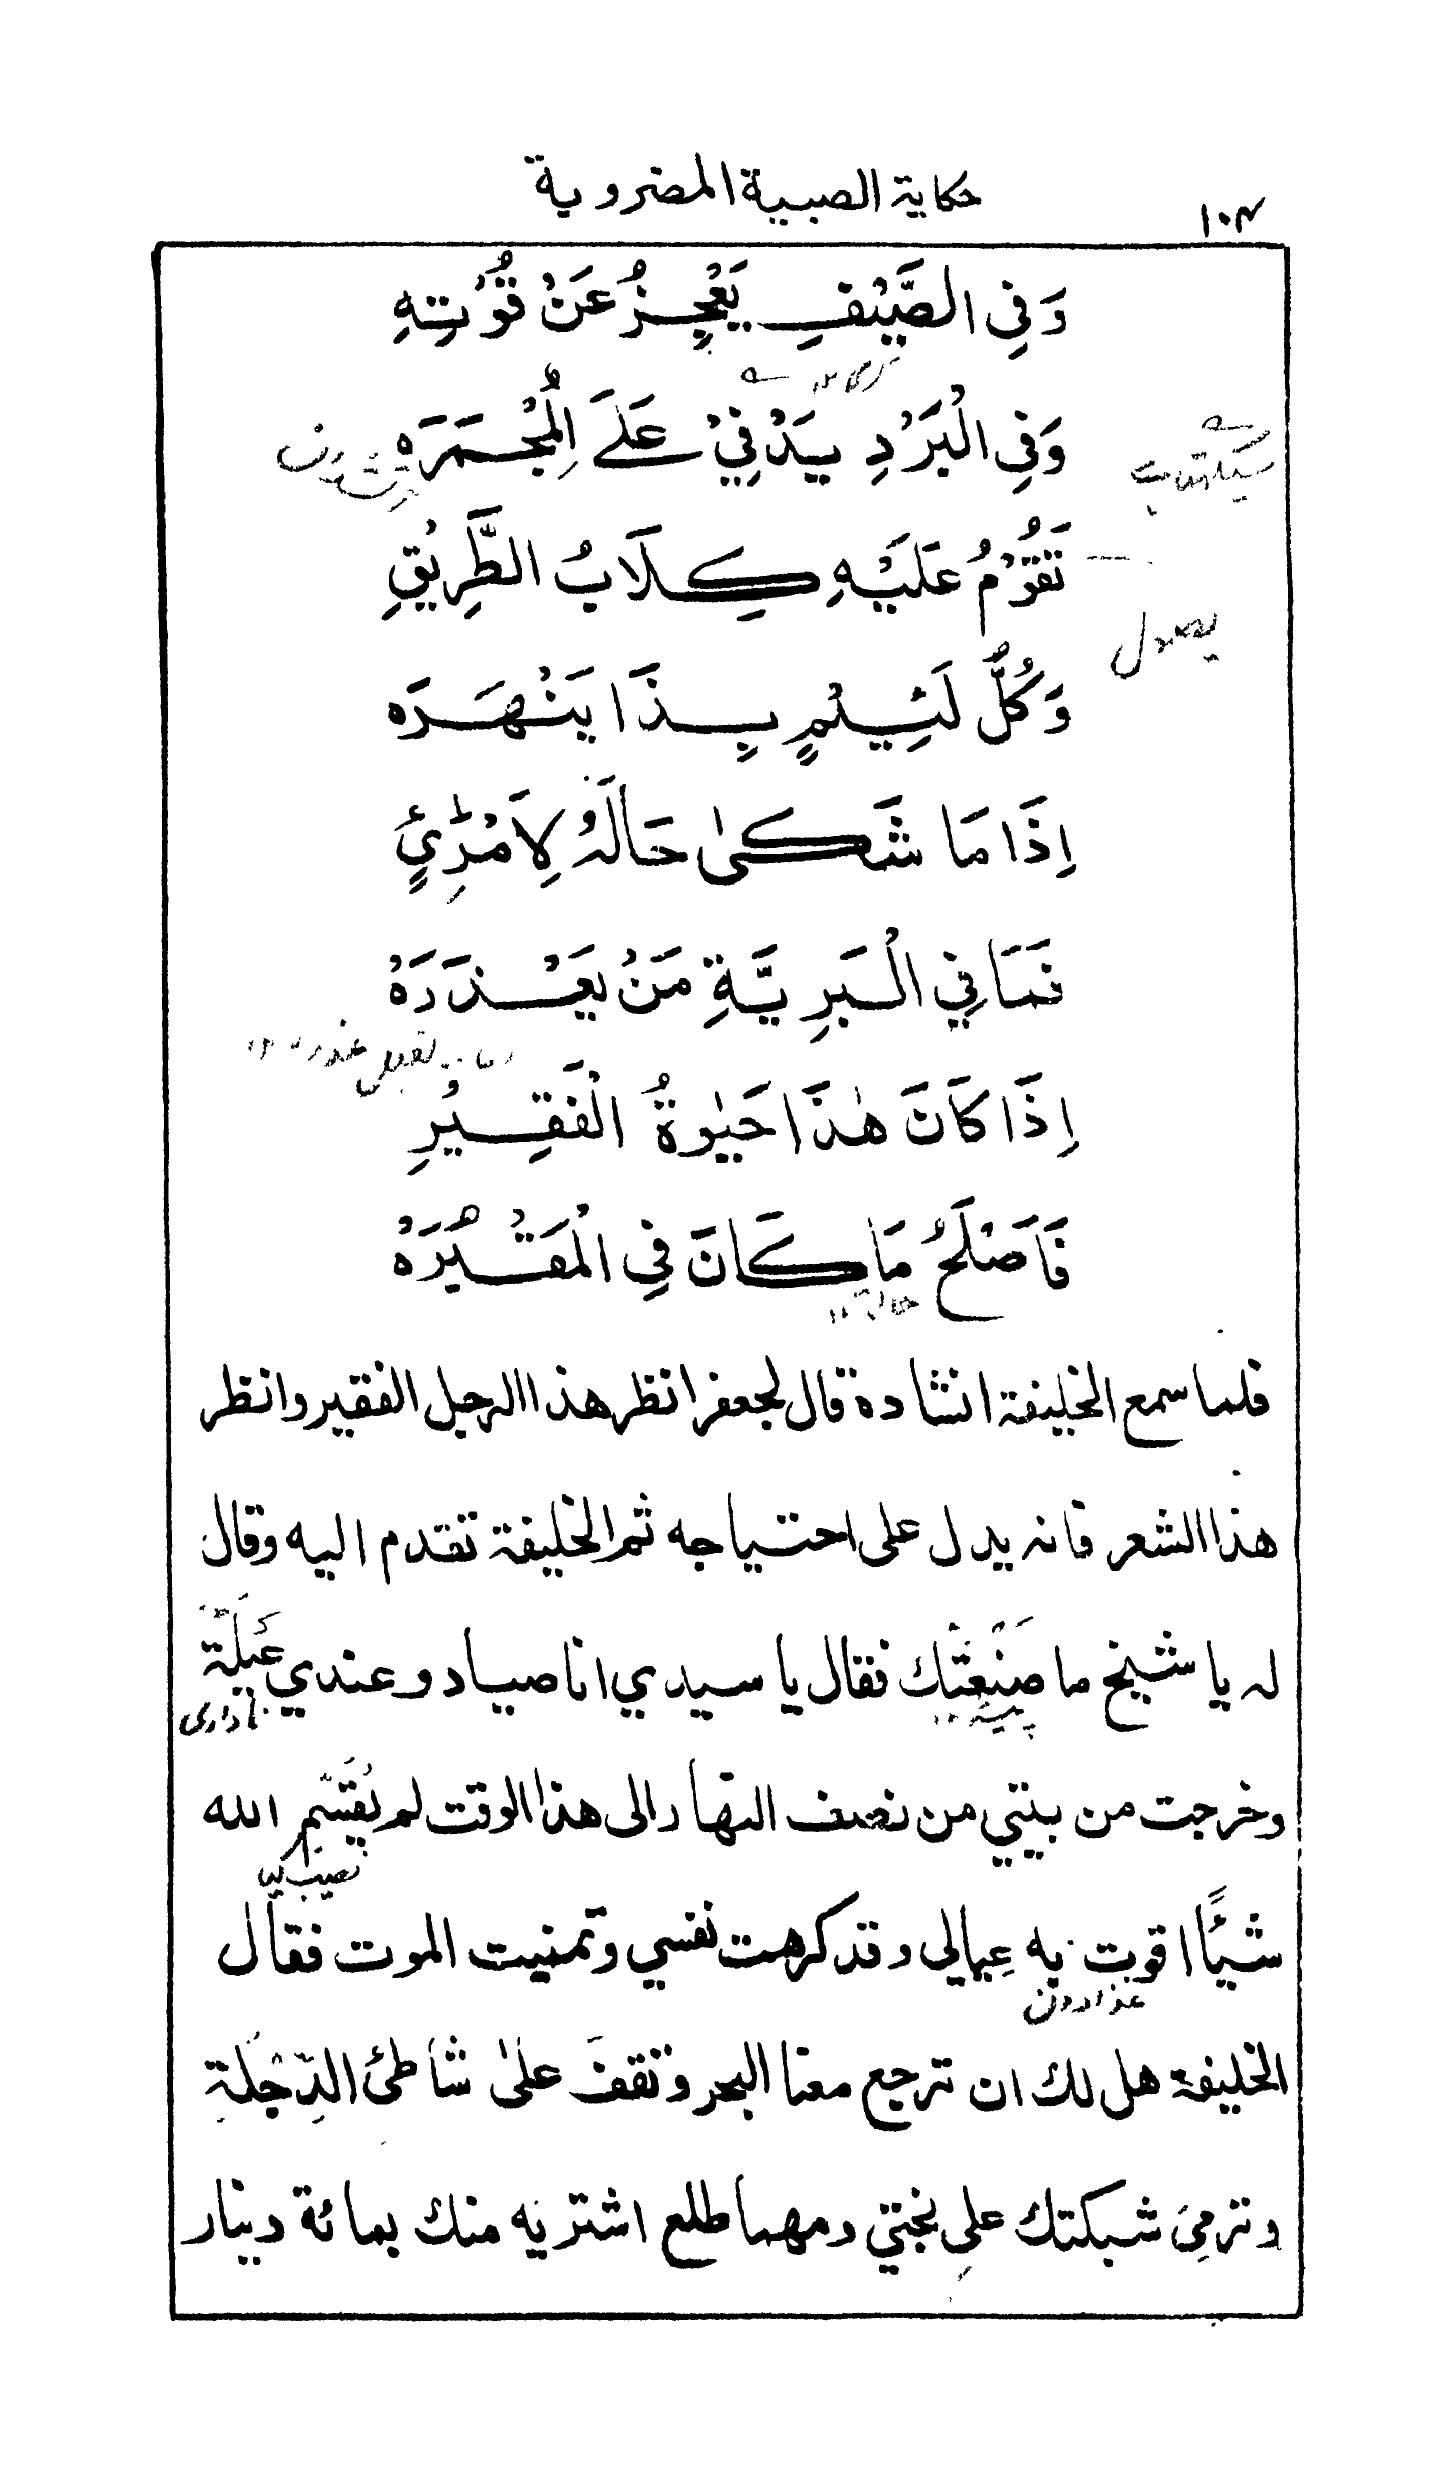 حكاية الصبية المضروبة
١٠٤
وَفِي الصَّيْفِ يَعْجِزُ عَنْ قُوْتِهِ
وَفِي الْبَرْدِ يَدْفِيْ عَلَے الْمِجْمَرَه
تَقُوْمُ عَلَيْهِ كِلَابُ الطَّرِيْقِ
يصول
وَكُلُّ لَئِيْمٍ بِذَا يَنْهَرَه
اِذَا مَا شَكىٰ حَالَهُ لِاَمْرِئٍ
فَمَا فِي الْبَرِيَّةِ مَنْ يَعْذَرَهْ
اِذَا كَانَ هٰذَا حَيٰوةُ الْفَقِيْرِ
فَاَصْلَحُ مَا كَانَ فِي الْمَقْبُرَهْ
فلما سمع الخليفة انشاده قال لجعفر انظر هذا الرجل الفقير وانظر
هذا الشعر فانه يدل على احتياجه ثم الخليفة تقدم اليه وقال
له يا شيخ ما صَنْعَتُك فقال يا سيدي انا صياد وعندي عَيلَة
ناداری
وخرجت من بيتي من نصف النهار الى هذا الوقت لم يُقَسِّم الله
نصیب
شيئًا اقوت به عِيالي وقد كرهت نفسي وتمنيت الموت فقال
الخليفة هل لك ان ترجع معنا البحر وتقفَ علىٰ شاطئ الدِّجْلَة
وترمِيَ شبكتك على بختي ومهما طلع اشتريه منك بمائة دينار